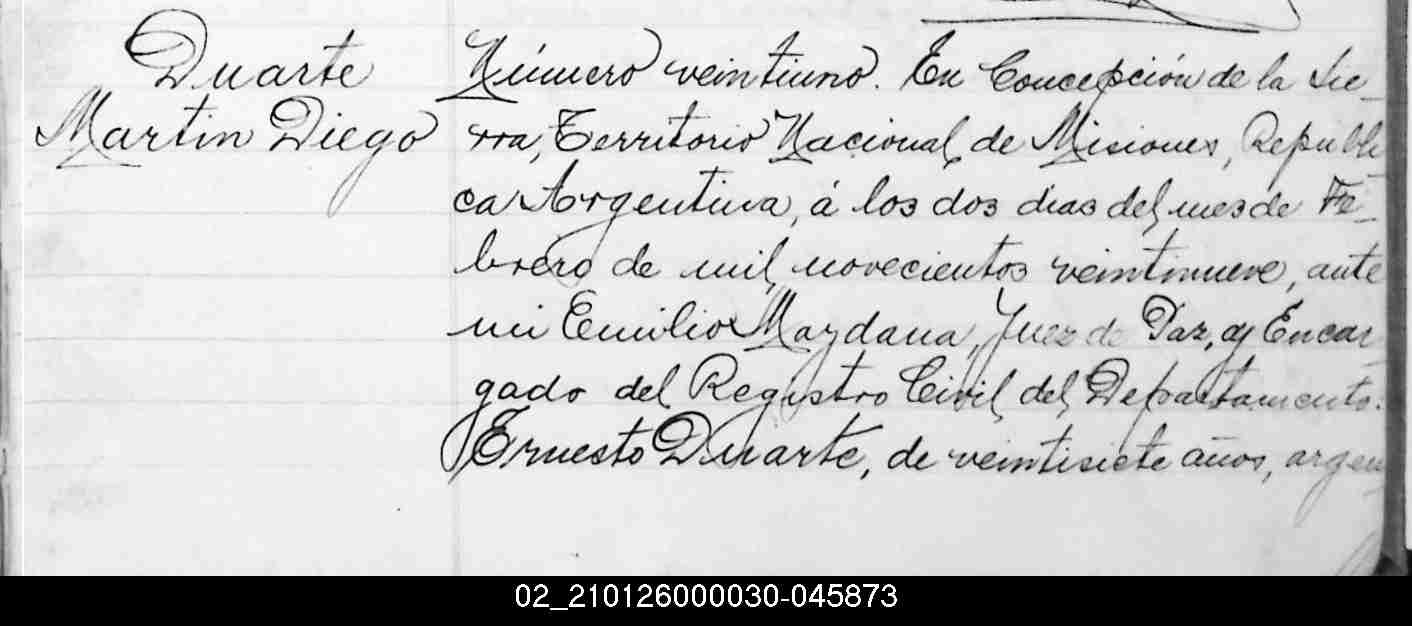 Duarte
Martin Diego
Número veintiuno. En Concepción de la Sie_
rra, Territorio Nacional, de Misiones, Republi_
ca Argentina, á los dos dias del mes de Fe_
brero de mil novecientos veintinueve, ante
mi Emilio Maydana, Juez de Paz, y Encar_
gado del Registro Civil del Departamento.
Ernesto Duarte, de veintisiete años, argen_
02_210126000030-045873